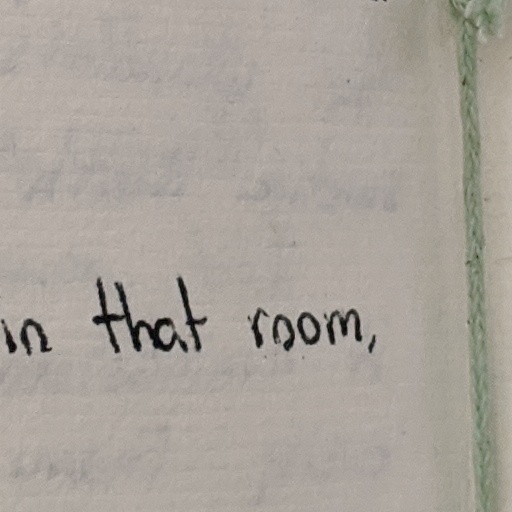 in that room,